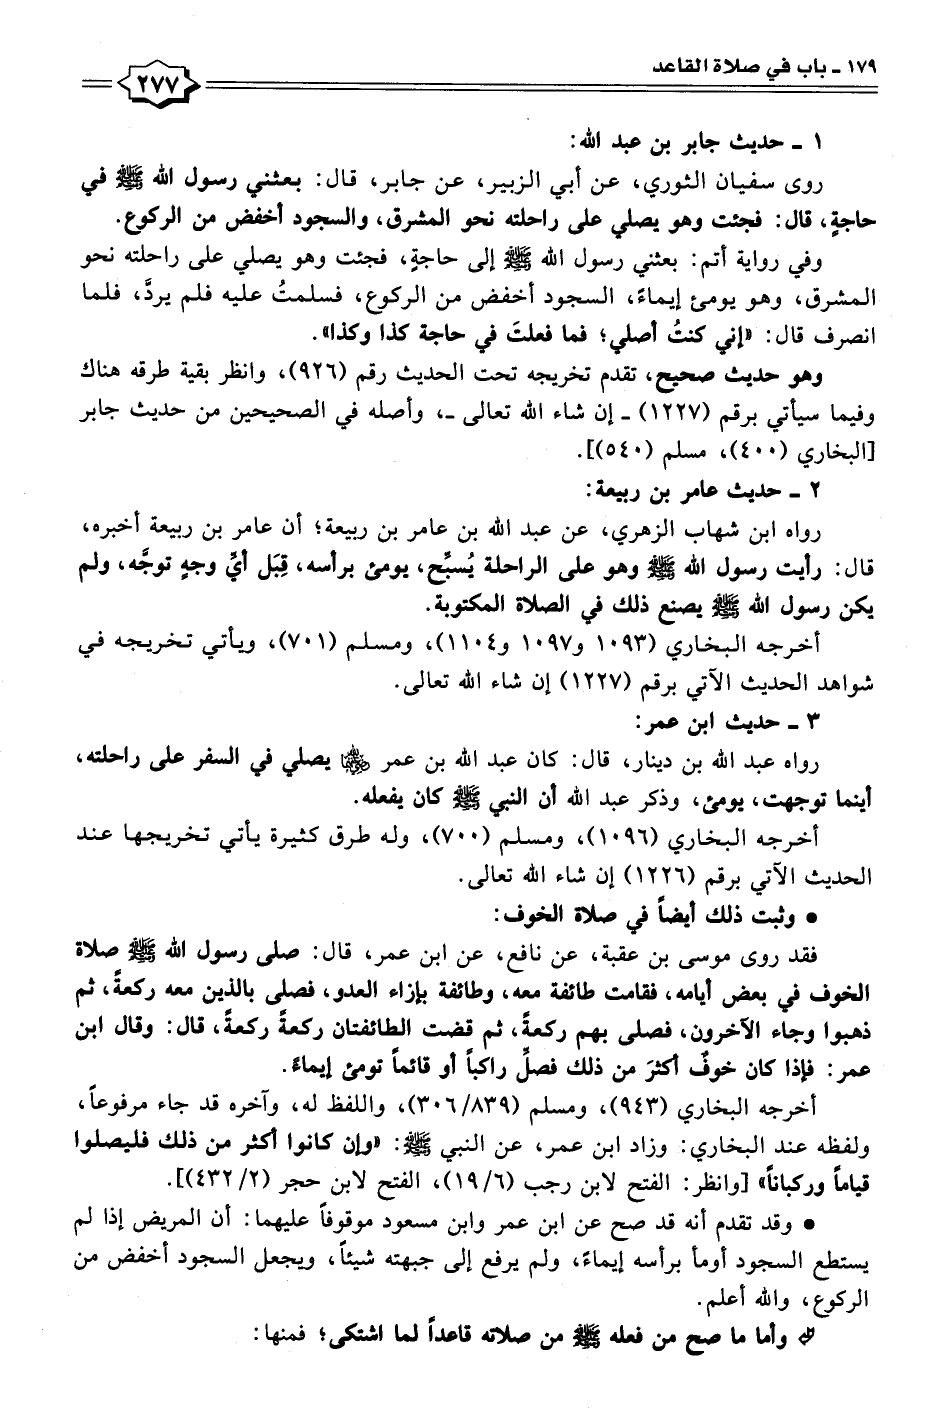 ١٧٩ ـ باب في صلاة القاعد
٢٧٧
١ ـ حديث جابر بن عبد الله:
روى سفيان الثوري، عن أبي الزبير، عن جابر، قال: بعثني رسول الله ﷺ في
حاجةٍ، قال: فجئت وهو يصلي على راحلته نحو المشرق، والسجود أخفض من الركوع.
وفي رواية أتم: بعثني رسول الله ﷺ إلى حاجةٍ، فجئت وهو يصلي على راحلته نحو
المشرق، وهو يومئ إيماءً، السجود أخفض من الركوع، فسلمتُ عليه فلم يردَّ، فلما
انصرف قال: «إني كنتُ أصلي؛ فما فعلتَ في حاجة كذا وكذا».
وهو حديث صحيح، تقدم تخريجه تحت الحديث رقم (٩٢٦)، وانظر بقية طرقه هناك
وفيما سيأتي برقم (١٢٢٧) ـ إن شاء الله تعالى ـ، وأصله في الصحيحين من حديث جابر
[البخاري (٤٠٠)، مسلم (٥٤٠)].
٢ ـ حديث عامر بن ربيعة:
رواه ابن شهاب الزهري، عن عبد الله بن عامر بن ربيعة؛ أن عامر بن ربيعة أخبره،
قال: رأيت رسول الله ﷺ وهو على الراحلة يُسبِّح، يومئ برأسه، قِبَل أيِّ وجهٍ توجَّه، ولم
يكن رسول الله ﷺ يصنع ذلك في الصلاة المكتوبة.
أخرجه البخاري (١٠٩٣ و١٠٩٧ و١١٠٤)، ومسلم (٧٠١)، ويأتي تخريجه في
شواهد الحديث الآتي برقم (١٢٢٧) إن شاء الله تعالى.
٣ ـ حديث ابن عمر:
رواه عبد الله بن دينار، قال: كان عبد الله بن عمر رضي الله عنهما يصلي في السفر على راحلته،
أينما توجهت، يومئ، وذكر عبد الله أن النبي ﷺ كان يفعله.
أخرجه البخاري (١٠٩٦)، ومسلم (٧٠٠)، وله طرق كثيرة يأتي تخريجها عند
الحديث الآتي برقم (١٢٢٦) إن شاء الله تعالى.
• وثبت ذلك أيضاً في صلاة الخوف:
فقد روى موسى بن عقبة، عن نافع، عن ابن عمر، قال: صلى رسول الله ﷺ صلاة
الخوف في بعض أيامه، فقامت طائفة معه، وطائفة بإزاء العدو، فصلى بالذين معه ركعةً، ثم
ذهبوا وجاء الآخرون، فصلى بهم ركعةً، ثم قضت الطائفتان ركعةً ركعةً، قال: وقال ابن
عمر: فإذا كان خوفٌ أكثرَ من ذلك فصلِّ راكباً أو قائماً تومئ إيماءً.
أخرجه البخاري (٩٤٣)، ومسلم (٣٠٦/٨٣٩)، واللفظ له، وآخره قد جاء مرفوعاً،
ولفظه عند البخاري: وزاد ابن عمر، عن النبي ﷺ: «وإن كانوا أكثر من ذلك فليصلوا
قياماً وركباناً» [وانظر: الفتح لابن رجب (١٩/٦)، الفتح لابن حجر (٤٣٢/٢)].
• وقد تقدم أنه قد صح عن ابن عمر وابن مسعود موقوفاً عليهما: أن المريض إذا لم
يستطع السجود أومأ برأسه إيماءً، ولم يرفع إلى جبهته شيئاً، ويجعل السجود أخفض من
الركوع، والله أعلم.
وأما ما صح من فعله ﷺ من صلاته قاعداً لما اشتكى؛ فمنها: